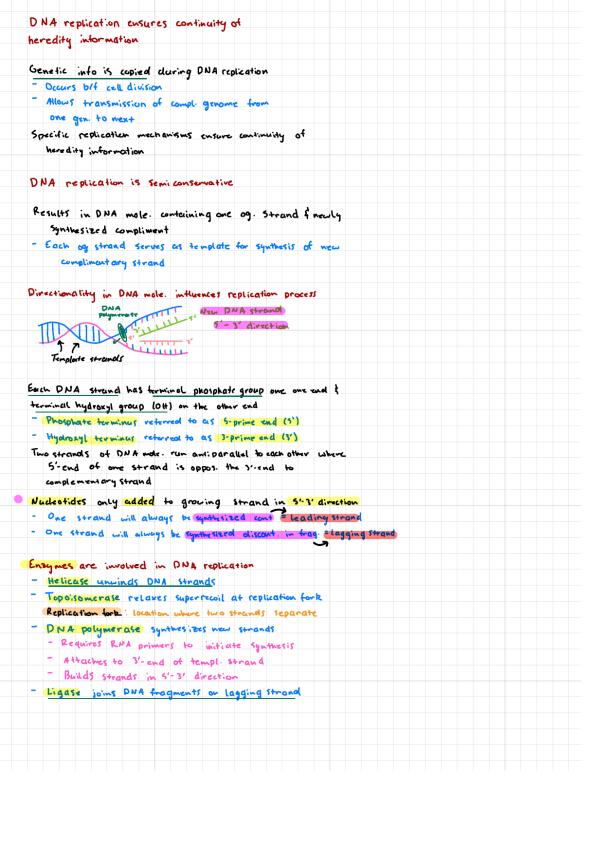 DNA replication ensures continuity of
heredity information
Genetic info is copied during DNA replication
- Occurs b/f cell division
- Allows transmission of compl. genome from
one gen. to next
Specific replication mechanisms ensure continuity of
heredity information
DNA replication is semiconservative
Results in DNA mole. containing one og. strand & newly
synthesized compliment
- Each og strand serves as template for synthesis of new
complimentary strand
Directionality in DNA mole. influences replication process
DNA
polymerase
New DNA strand
5'-3' direction
Template strands
Each DNA strand has terminal phosphate group one one end &
terminal hydroxyl group (OH) on the other end
- Phosphate terminus referred to as 5-prime end (5')
- Hydroxyl terminus referred to as 3-prime end (3')
Two strands of DNA mole. run antiparallel to each other where
5'-end of one strand is oppos. the 3'-end to
complementary strand
Nucleotides only added to growing strand in 5'-3' direction
- One strand will always be synthesized cont = leading strand
- One strand will always be synthesized discont. in frag. = lagging strand
Enzymes are involved in DNA replication
- Helicase unwinds DNA strands
- Topoisomerase relaxes supercoil at replication fork
Replication fork: location where two strands separate
- DNA polymerase synthesizes new strands
- Requires RNA primers to initiate synthesis
- Attaches to 3'-end of templ. strand
- Builds strands in 5'-3' direction
- Ligase joins DNA fragments on lagging strand